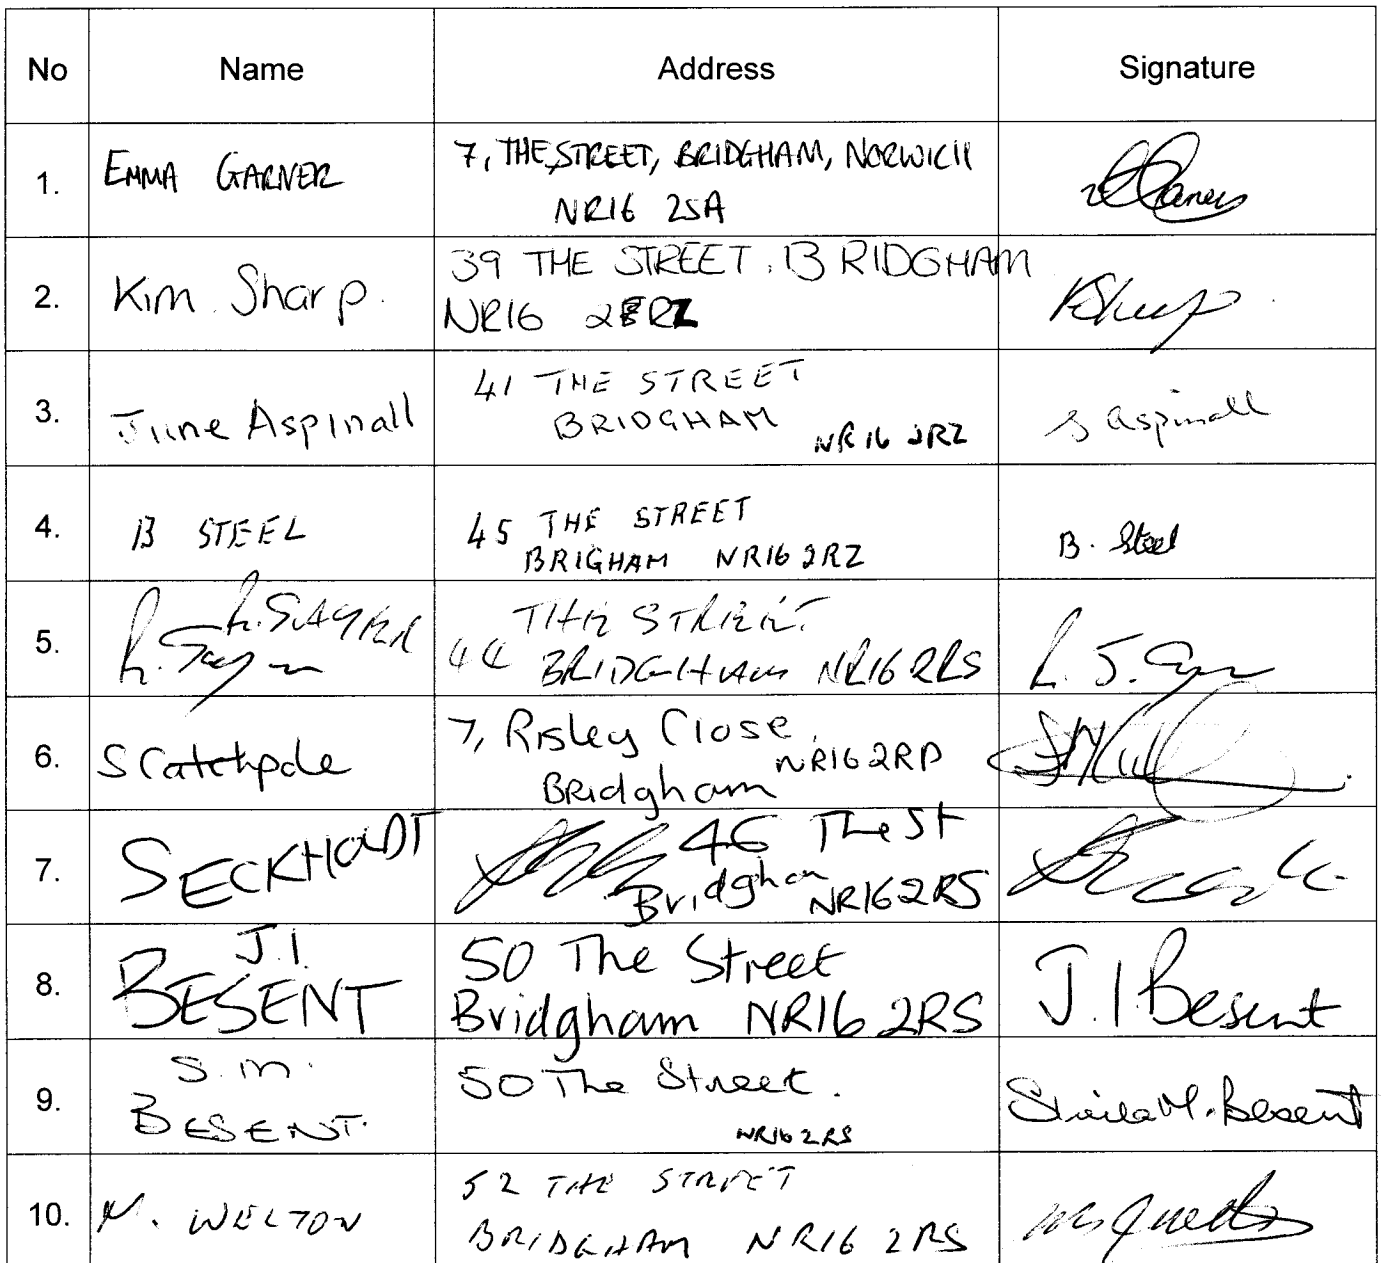 No Name Address Signature
1. EMMA GARNER 7, THE STREET, BRIDGHAM, NORWICH
NR16 2SA
2. Kim Sharp. 39 THE STREET. BRIDGHAM KSharp
NR16 2RZ
3. June Aspinall 41 THE STREET
BRIDGHAM NR16 2RZ J Aspinall
4. B STEEL 45 THE STREET
BRIGHAM NR16 2RZ B. Steel
5. R. SAYER THE STREET.
44 BRIDGHAM NR16 2RS
6. S Catchpole 7, Risley Close,
Bridgham NR16 2RP
7. SECKHOLDT 46 The St
Bridgham NR16 2RS
8. J.I. BESENT 50 The Street
Bridgham NR16 2RS J. I Besent
9. S.M. BESENT. 50 The Street.
NR16 2RS Sheila M. Besent
10. M. WELTON 52 THE STREET
BRIDGHAM NR16 2RS